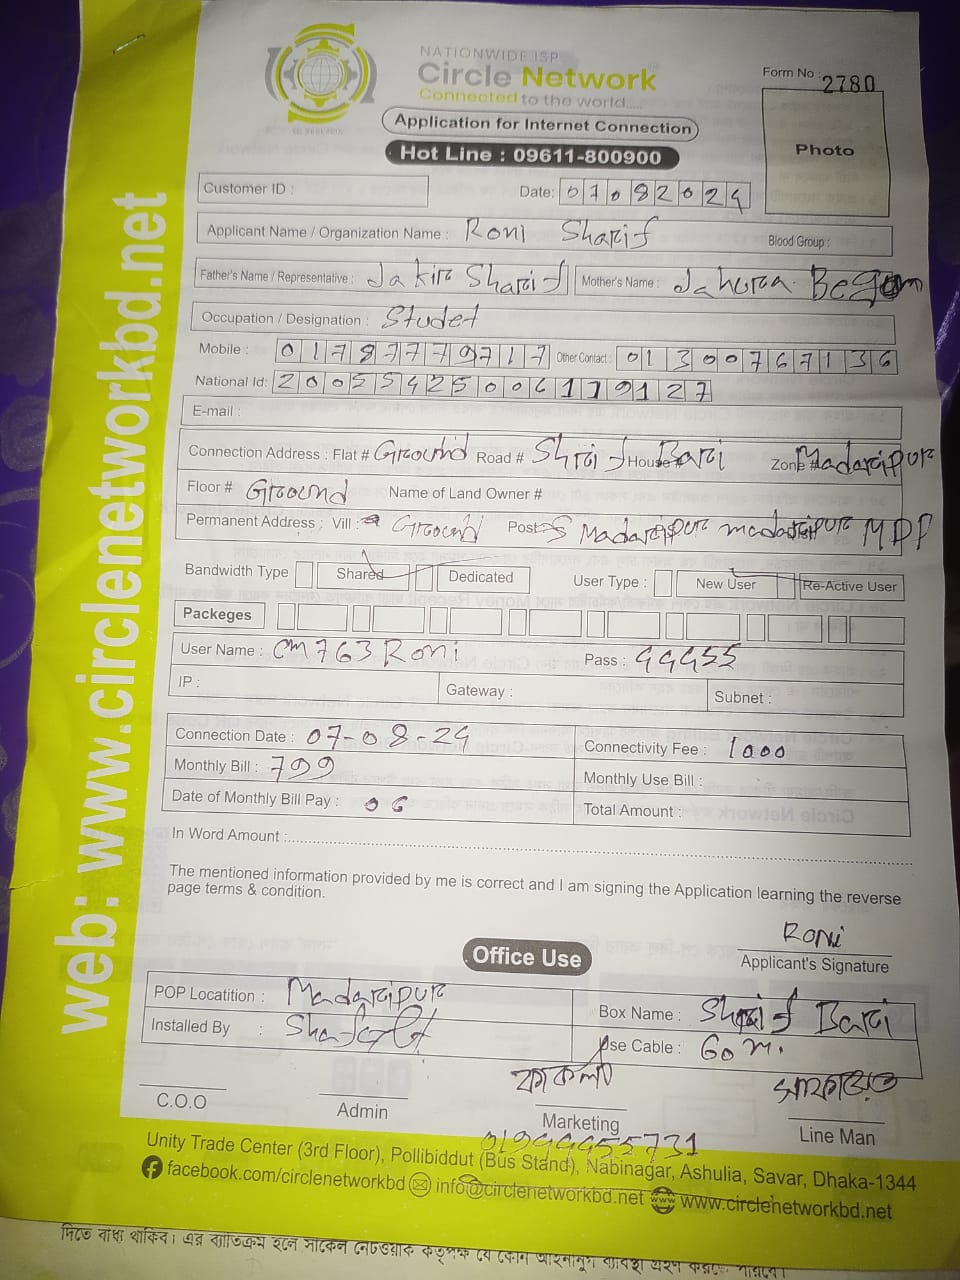 NATIONWIDE ISP
Circle Network
Connected to the world.....
Form No : 2780
Application for Internet Connection
Photo
Hot Line : 09611-800900
Customer ID :
Date: 07082024
Applicant Name / Organization Name : Roni Sharif
Blood Group :
Father's Name / Representative : Jakir Sharif Mother's Name : Jahura Begom
Occupation / Designation : Studet
Mobile : 01787779717 Other Contact : 01300767136
National Id: 20055425006119127
E-mail :
Connection Address : Flat #Ground Road # Shrif House # Bari Zone # Madaripur
Floor # Ground Name of Land Owner #
Permanent Address : Vill : Ground Post Madaripur madaripur MDP
Bandwidth Type Shared Dedicated User Type : New User Re-Active User
Packeges
User Name : cm763Roni Pass : 44455
IP : Gateway : Subnet :
Connection Date : 07-08-24 Connectivity Fee : 1000
Monthly Bill : 799 Monthly Use Bill :
Date of Monthly Bill Pay : 06 Total Amount :
In Word Amount :
The mentioned information provided by me is correct and I am signing the Application learning the reverse
page terms & condition.
Roni
Applicant's Signature
Office Use
POP Locatition : Madaripur Box Name : Shrif Bari
Installed By : Use Cable : 60 m.
C.O.O Admin Marketing Line Man
01944455731
Unity Trade Center (3rd Floor), Pollibiddut (Bus Stand), Nabinagar, Ashulia, Savar, Dhaka-1344
facebook.com/circlenetworkbd info@circlenetworkbd.net www.circlenetworkbd.net
web: www.circlenetworkbd.net
দিতে বাধ্য থাকিব। এর ব্যতিক্রম হলে সার্কেল নেটওয়ার্ক কর্তৃপক্ষ যে কোন আইনানুগ ব্যবস্থা গ্রহণ করতে পারবে।